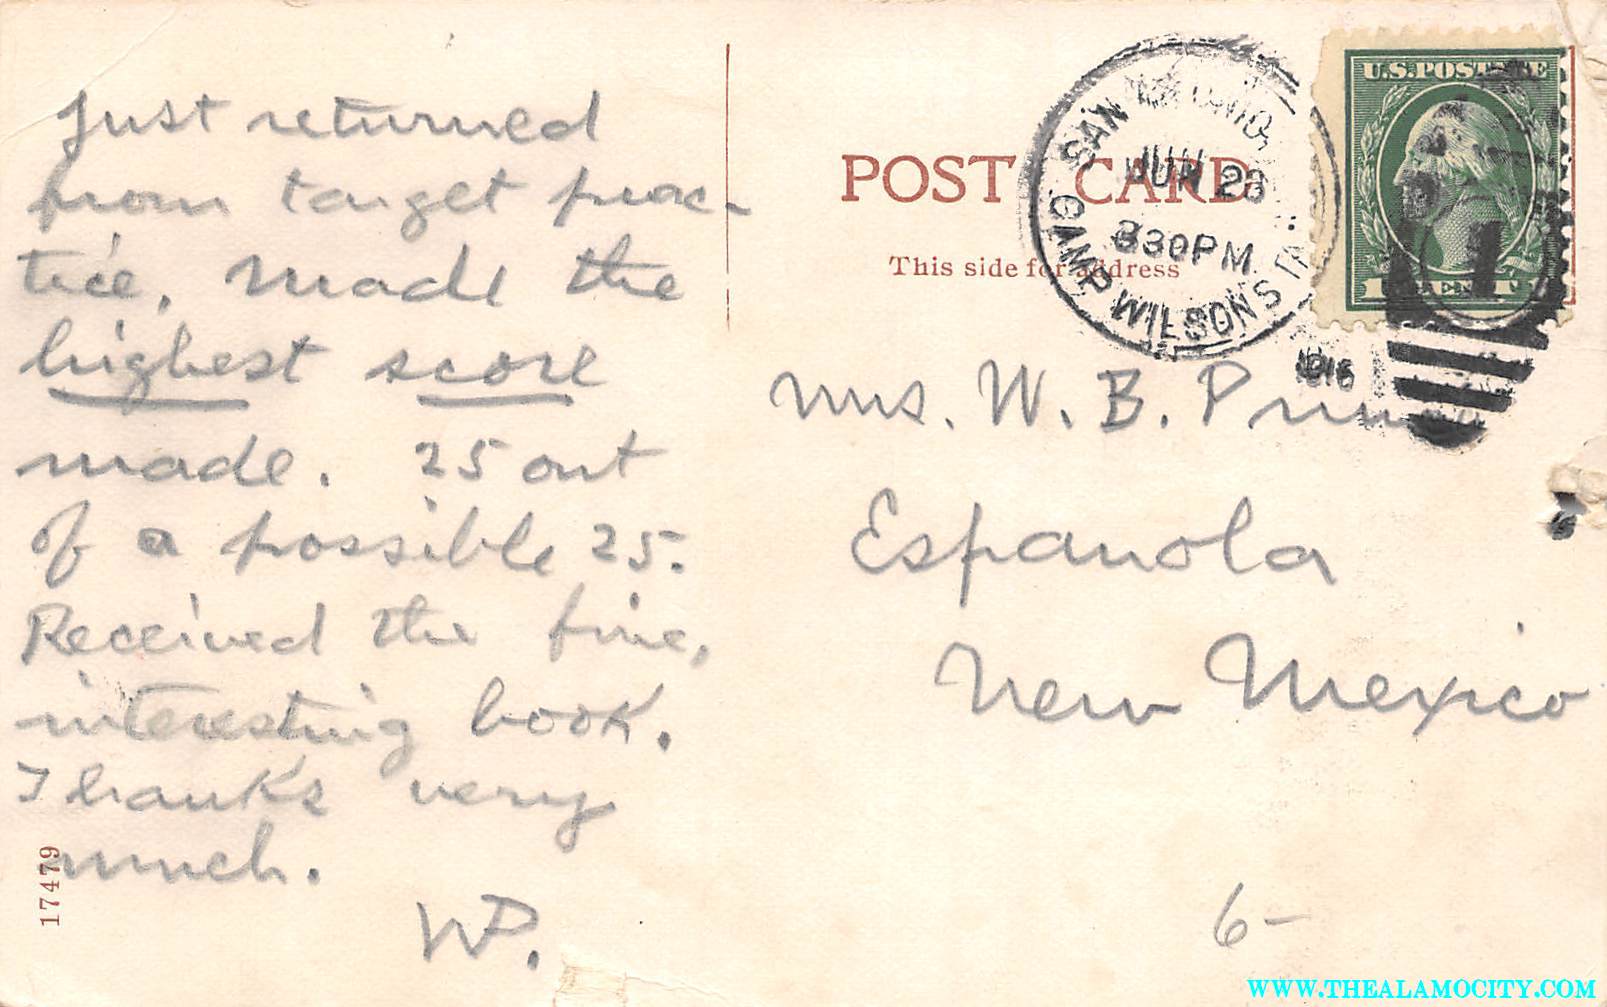 Just returned
from target prac-
tice. Made the
highest score
made. 25 out
of a possible 25.
Received the fine,
interesting book.
Thanks very
much.
WP.
17479
POST CARD
This side for address
SAN ANTONIO,
JUN 26
330PM
CAMP WILSON STA.
1916
U.S. POSTAGE
Mrs. W. B.
Espanola
New Mexico
6-
WWW.THEALAMOCITY.COM